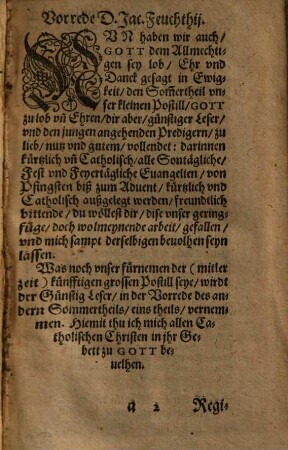 Vorrede D. Jac. Feuchthij.
NVN haben wir auch/
GOTT dem Allmechti-
gen sey lob/ Ehr vnd
Danck gesagt in Ewig-
keit/ den Som̃ertheil vn-
ser kleinen Postill/ GOTT
zu lob vñ Ehren/ dir aber/ günstiger Leser/
vnd den jungen angehenden Predigern/ zu
lieb/ nutz vnd gutem/ vollendet: darinnen
kürtzlich vñ Catholisch/ alle Sontägliche/
Fest vnd Feyertägliche Euangelien/ von
Pfingsten biß zum Aduent/ kürtzlich vnd
Catholisch außgelegt werden/ freundlich
bittende/ du wöllest dir/ dise vnser gering-
füge/ doch wolmeynende arbeit/ gefallen/
vnd mich sampt derselbigen beuolhen seyn
lassen.
Was noch vnser fürnemen der (mitler
zeit) künfftigen grossen Postill seye/ wirdt
der Günstig Leser/ in der Vorrede des an-
dern Sommertheils/ eins theils/ vernem-
men. Hiemit thu ich mich allen Ca-
tholischen Christen in jhr Ge-
bett zu GOTT be-
uelhen.
a 2 Regi-